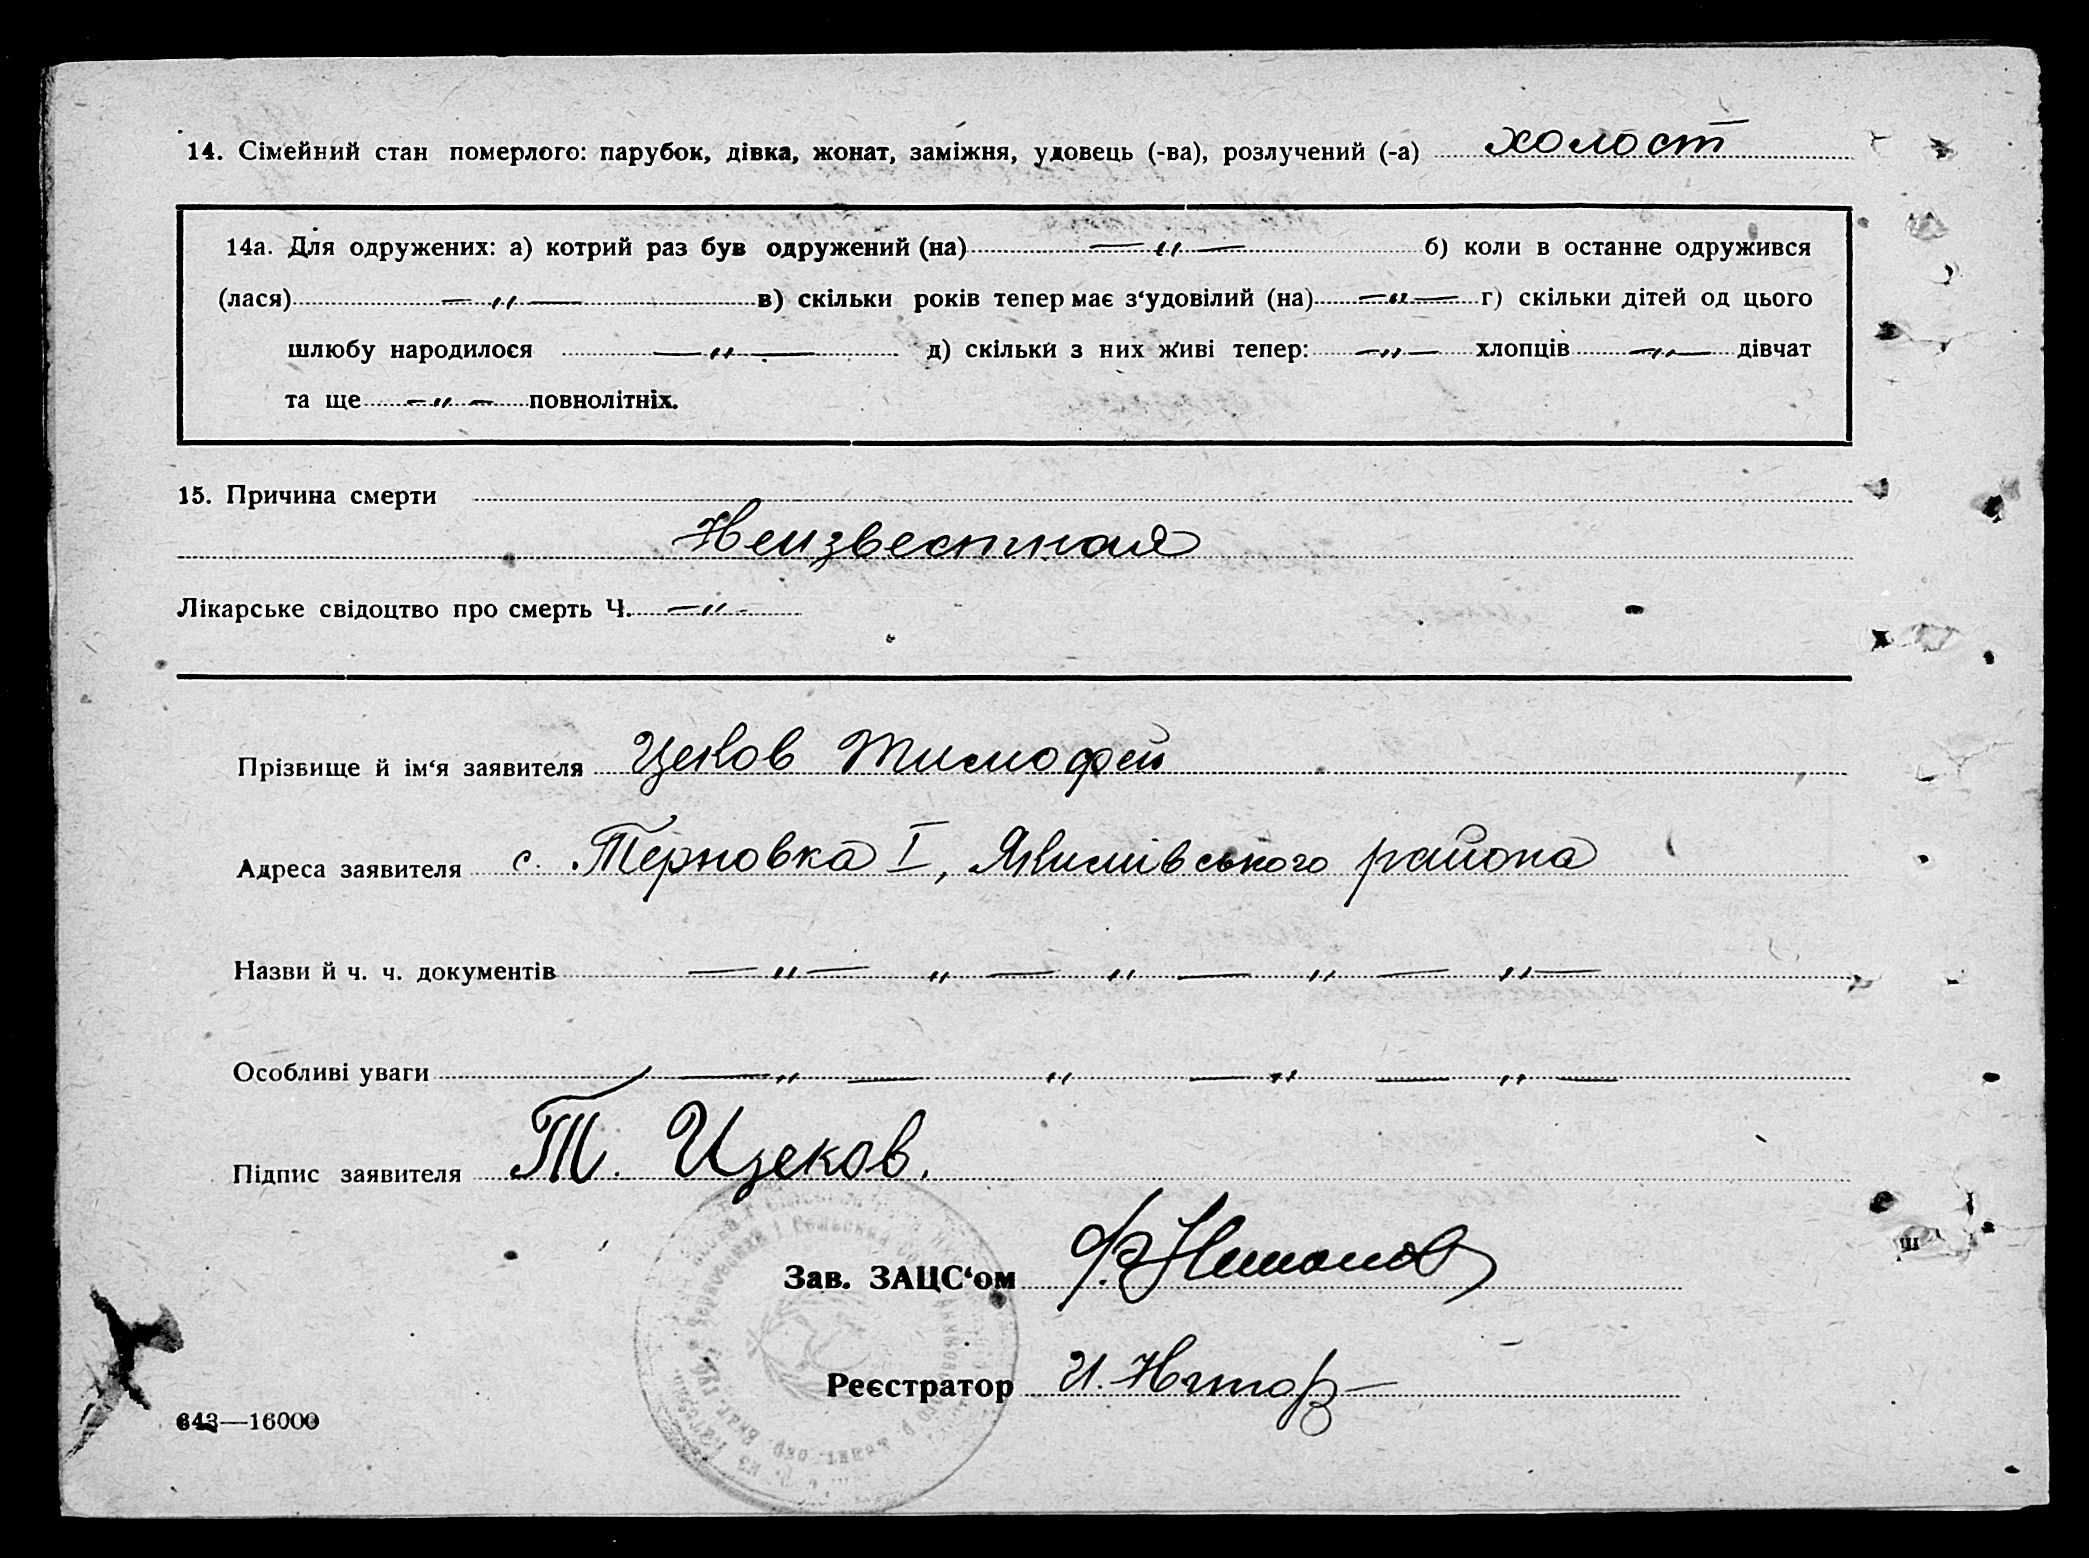 14. Сімейний стан померлого: парубок, дівка, жонат, заміжня, удовець (-ва), розлучений (-а) холост
14а. Для одружених: а) котрий раз був одружений (на) — " — б) коли в останне одружився
(лася) — " — в) скільки років тепер має з‘удовілий (на) — " — г) скільки дітей од цього
шлюбу народилося — " — д) скільки з них живі тепер: — " — хлопців — " — дівчат
та ще — " — повнолітніх.
15. Причина смерти
Неизвестная
Лікарське свідоцтво про смерть Ч. — " -
Прізвище й ім‘я заявителя Цеков Тимофей
Адреса заявителя с. Терновка I, Якимівського района
Назви й ч. ч. документів — " — " — " — " — " —
Особливі уваги — " — " — " — " —
Підпис заявителя Т. Цеков.
Зав. ЗАЦС‘ом
Реєстратор И.
643—16000